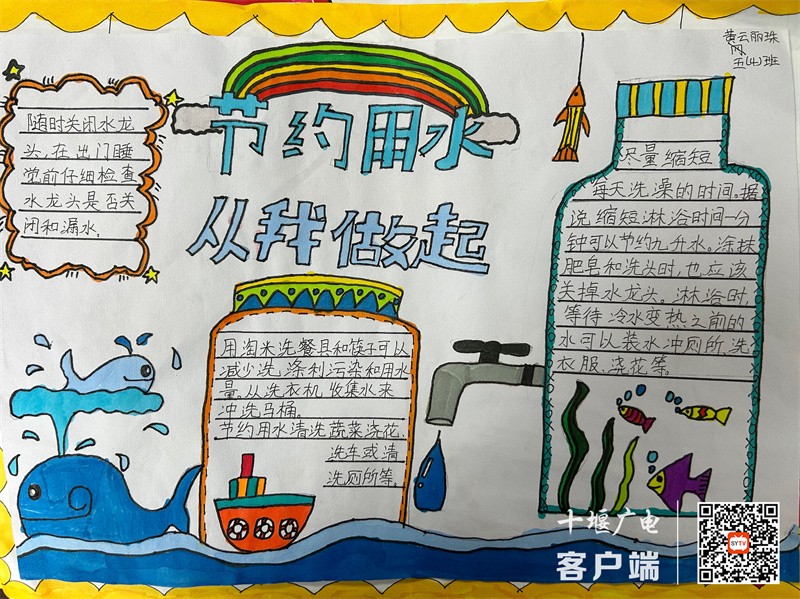 黄云丽珠
五(4)班
节约用水
从我做起
随时关闭水龙
头,在出门睡
觉前仔细检查
水龙头是否关
闭和漏水.
尽量缩短
每天洗澡的时间。据
说缩短淋浴时间一分
钟可以节约九升水。涂抹
肥皂和洗头时,也应该
关掉水龙头。淋浴时,
等待冷水变热之前的
水可以装水冲厕所、洗
衣服、浇花等。
用淘米洗餐具和筷子可以
减少洗涤剂污染和用水
量.从洗衣机收集水来
冲洗马桶。
节约用水清洗蔬菜浇花、
洗车或清
洗厕所等。
十堰广电
客户端
SYTV